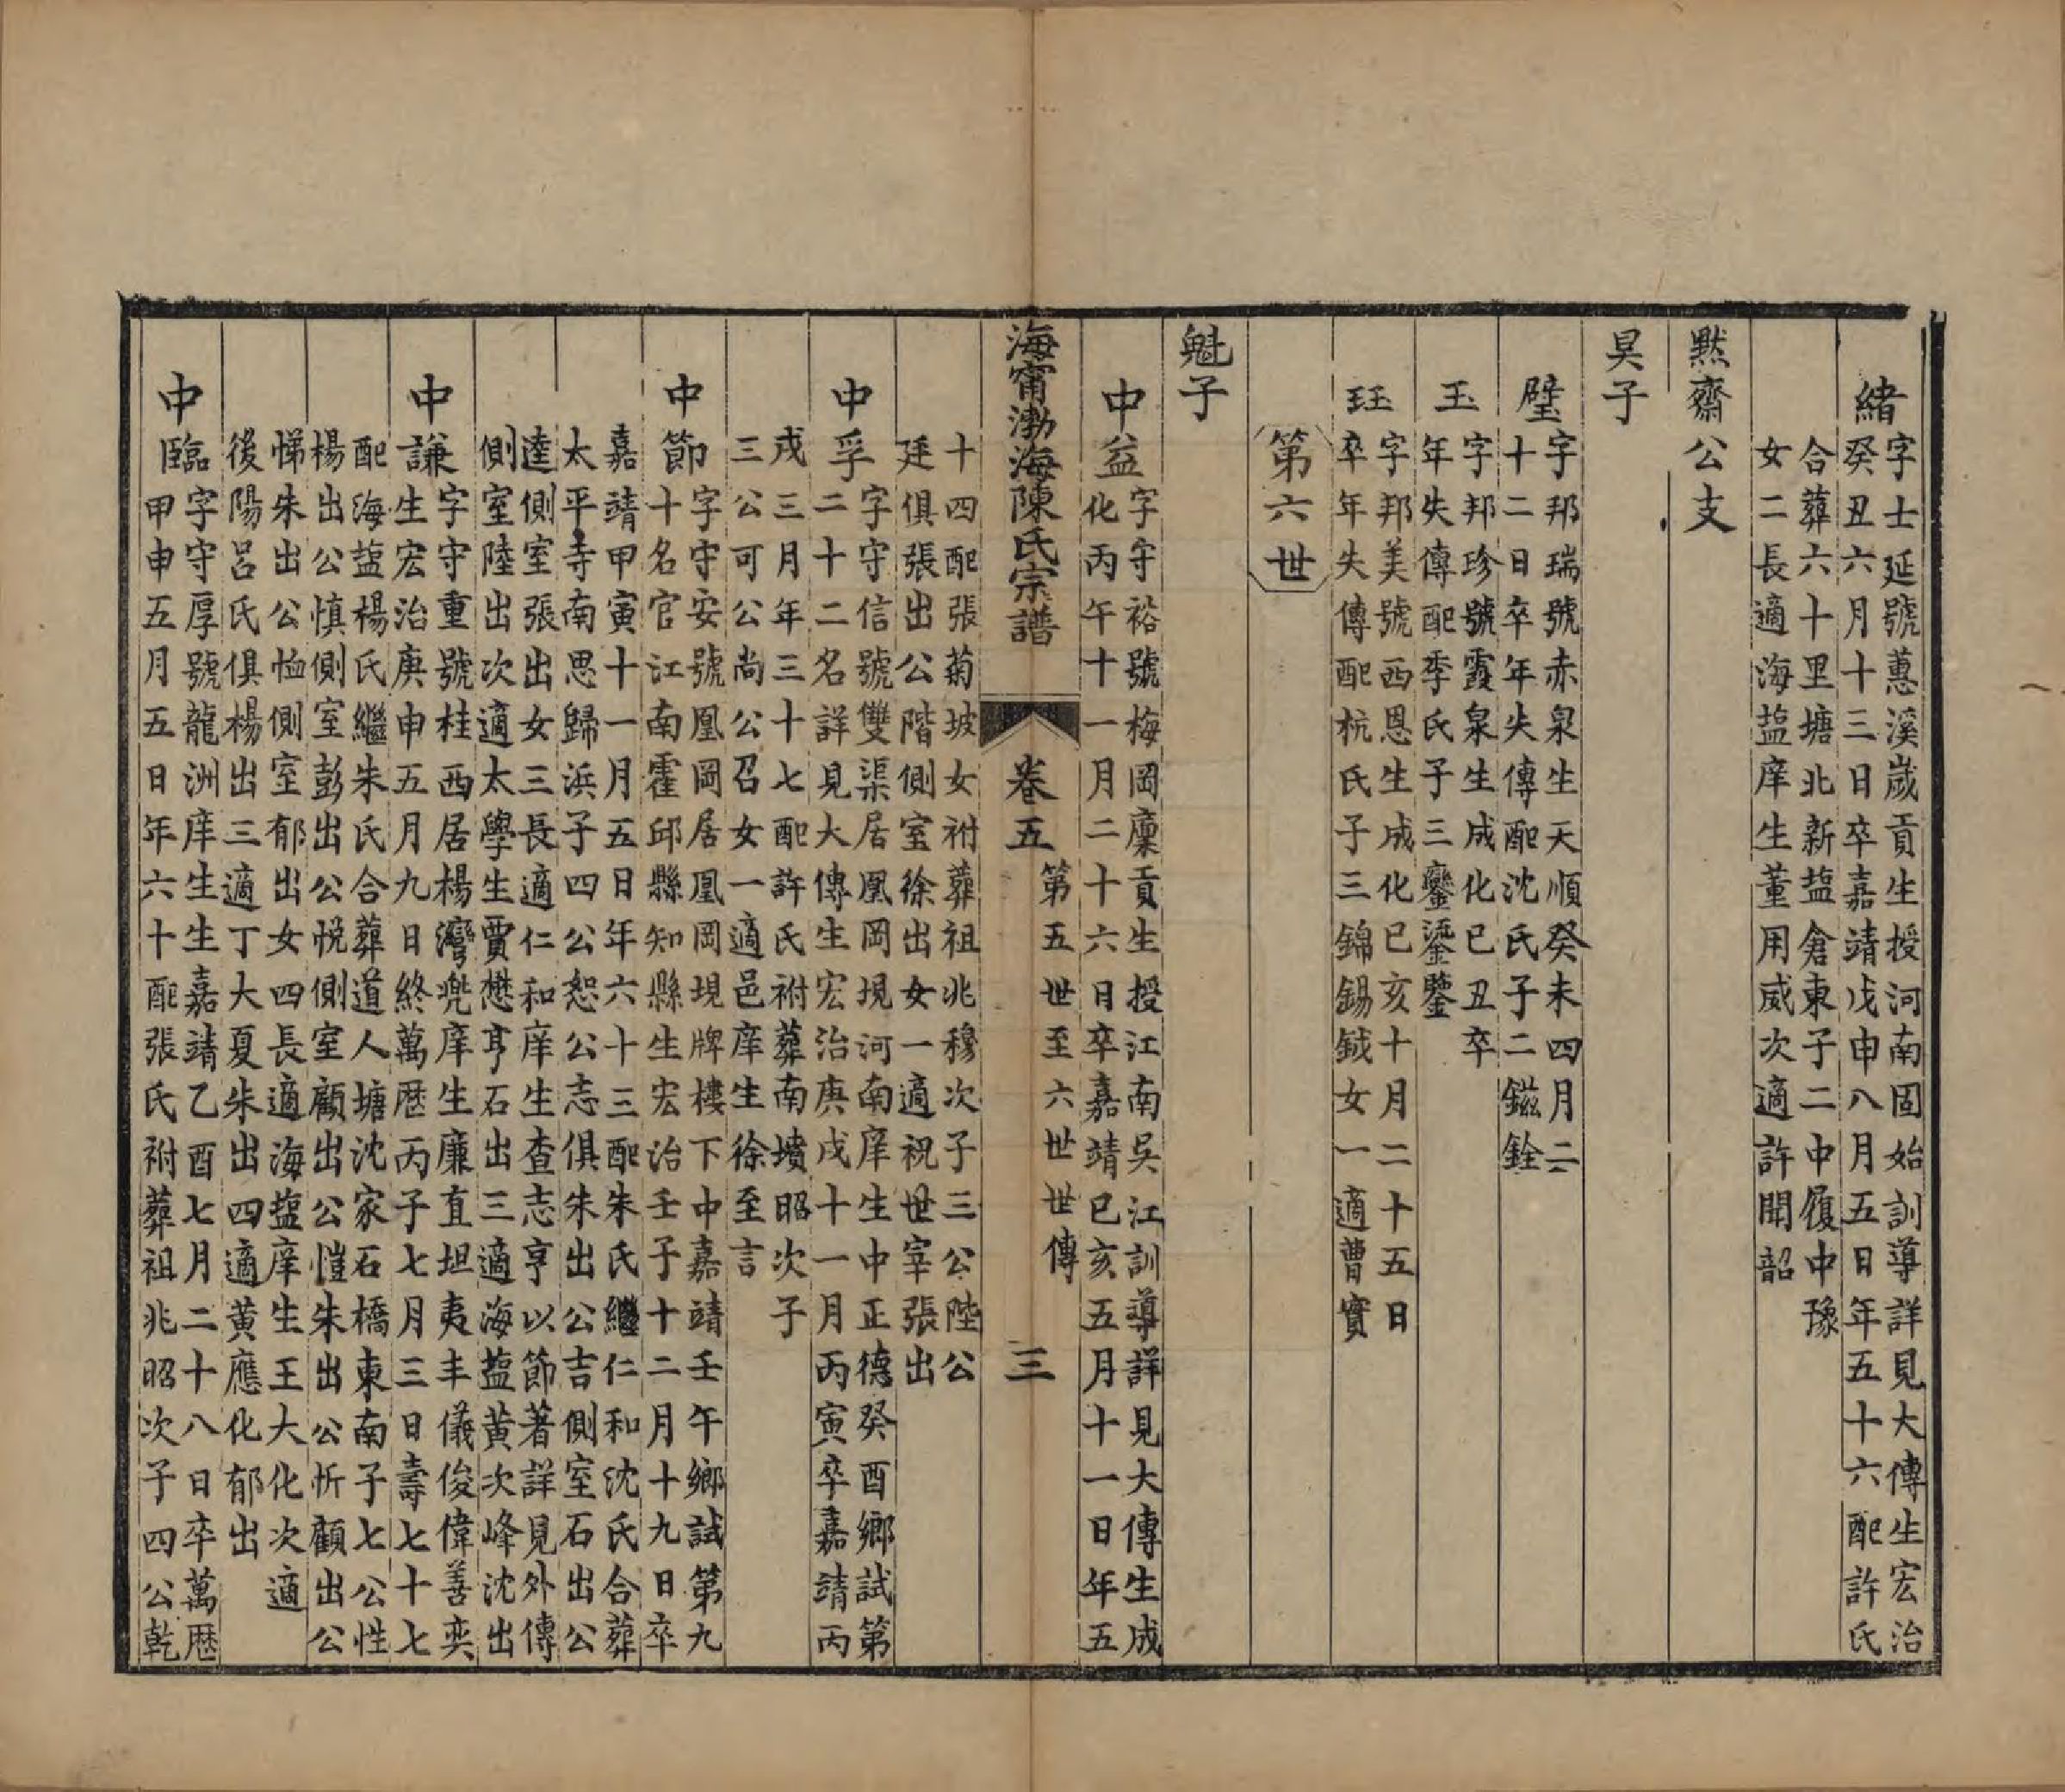 緒
字士延號蕙溪歲貢生授河南固始訓導詳見大傳生宏治
癸丑六月十三日卒嘉靖戊申八月五日年五十六配許氏
合葬六十里塘北新盐倉東子二中履中豫
女二長適海盐庠生董用威次適許聞韶
黙齋公支
昊子
璧
字邦瑞號赤泉生天順癸未四月二
十二日卒年失傳配沈氏子二鎡銓
玉
字邦珍號霞泉生成化己丑卒
年失傳配季氏子三鑾鎏鑒
珏
字邦美號西恩生成化己亥十月二十五日
卒年失傳配杭氏子三錦錫鉞女一適曹實
第六世
魁子
中益
字守裕號梅岡廩貢生授江南吳江訓導詳見大傳生成
化丙午十一月二十六日卒嘉靖己亥五月十一日年五
海甯渤海陳氏宗譜
卷五
第五世至六世世傳
三
十四配張菊坡女祔葬祖兆穆次子三公陞公
廷俱張出公階側室徐出女一適祝世宰張出
中孚
字守信號雙渠居凰岡堍河南庠生中正德癸酉鄉試第
二十二名詳見大傳生宏治庚戌十一月丙寅卒嘉靖丙
戌三月年三十七配許氏祔葬南墳昭次子
三公可公尚公召女一適邑庠生徐至言
中節
字守安號凰岡居凰岡堍牌樓下中嘉靖壬午鄉試第九
十名官江南霍邱縣知縣生宏治壬子十二月十九日卒
嘉靖甲寅十一月五日年六十三配朱氏繼仁和沈氏合葬
太平寺南思歸浜子四公恕公志俱朱出公吉側室石出公
逵側室張出女三長適仁和庠生查志亨以節著詳見外傳
側室陸出次適太學生賈懋亨石出三適海盐黄次峰沈出
中謙
字守重號桂西居楊灣兠庠生廉直坦夷丰儀俊偉善奕
生宏治庚申五月九日終萬厯丙子七月三日壽七十七
配海盐楊氏繼朱氏合葬道人塘沈家石橋東南子七公性
楊出公慎側室彭出公悅側室顧出公愷朱出公忻顧出公
悌朱出公恤側室郁出女四長適海盐庠生王大化次適
後陽呂氏俱楊出三適丁大夏朱出四適黄應化郁出
中臨
字守厚號龍洲庠生生嘉靖乙酉七月二十八日卒萬厯
甲申五月五日年六十配張氏祔葬祖兆昭次子四公乾